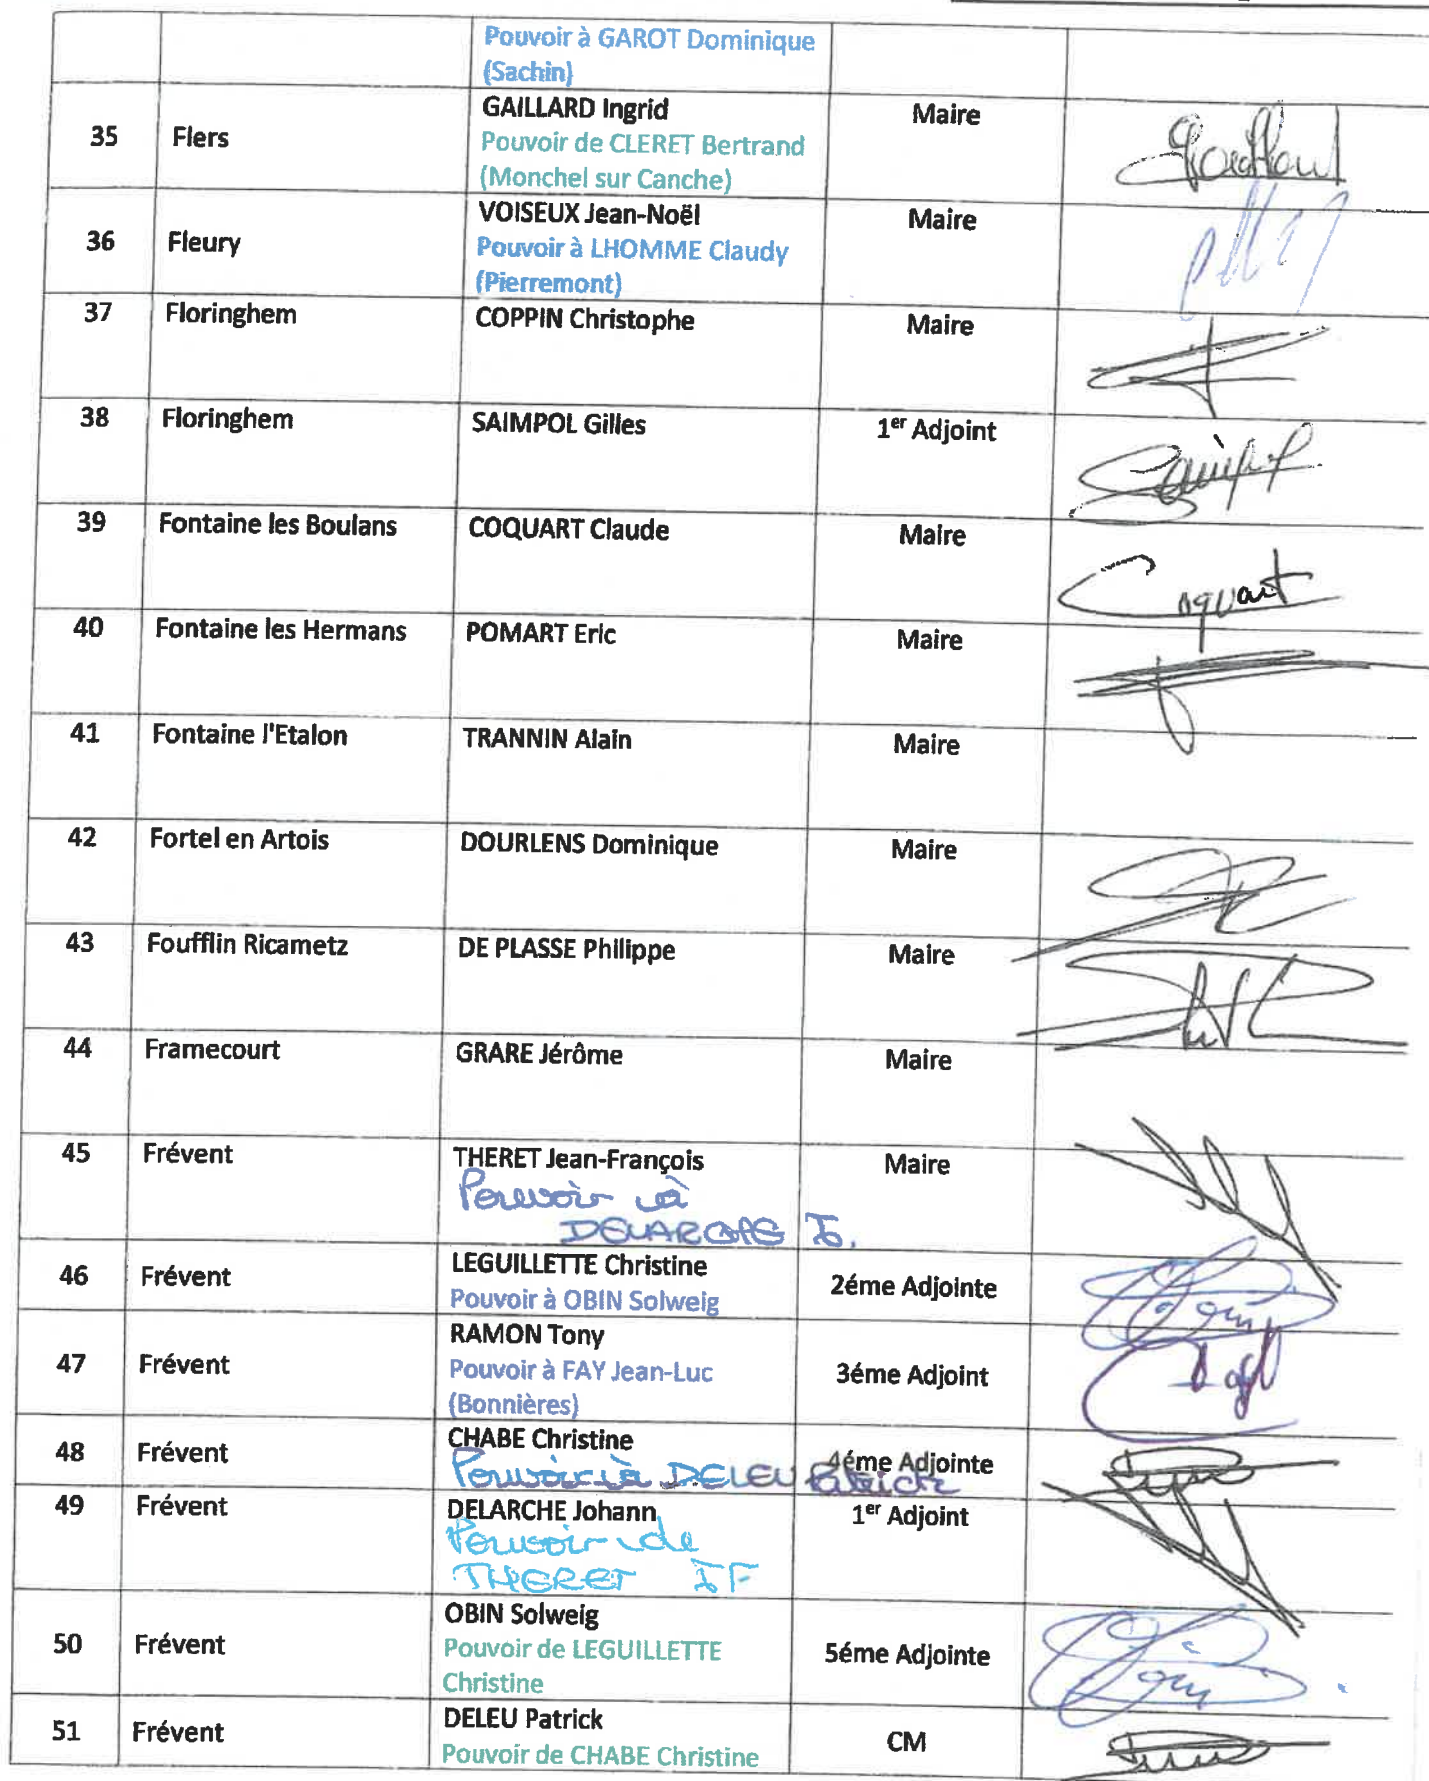 Pouvoir à GAROT Dominique
(Sachin)
35 Flers GAILLARD Ingrid Maire
Pouvoir de CLERET Bertrand
(Monchel sur Canche)
36 Fleury VOISEUX Jean-Noël Maire
Pouvoir à LHOMME Claudy
(Pierremont)
37 Floringhem COPPIN Christophe Maire
38 Floringhem SAIMPOL Gilles 1er Adjoint
39 Fontaine les Boulans COQUART Claude Maire
Coquart
40 Fontaine les Hermans POMART Eric Maire
41 Fontaine l'Etalon TRANNIN Alain Maire
42 Fortel en Artois DOURLENS Dominique Maire
43 Foufflin Ricametz DE PLASSE Philippe Maire
44 Framecourt GRARE Jérôme Maire
45 Frévent THERET Jean-François Maire
Pouvoir à
DELARCHE J.
46 Frévent LEGUILLETTE Christine 2éme Adjointe
Pouvoir à OBIN Solweig
47 Frévent RAMON Tony 3éme Adjoint
Pouvoir à FAY Jean-Luc
(Bonnières)
48 Frévent CHABE Christine 4éme Adjointe
Pouvoir à DELEU Patrick
49 Frévent DELARCHE Johann 1er Adjoint
Pouvoir de
THERET JF
50 Frévent OBIN Solweig 5éme Adjointe
Pouvoir de LEGUILLETTE
Christine
51 Frévent DELEU Patrick CM
Pouvoir de CHABE Christine